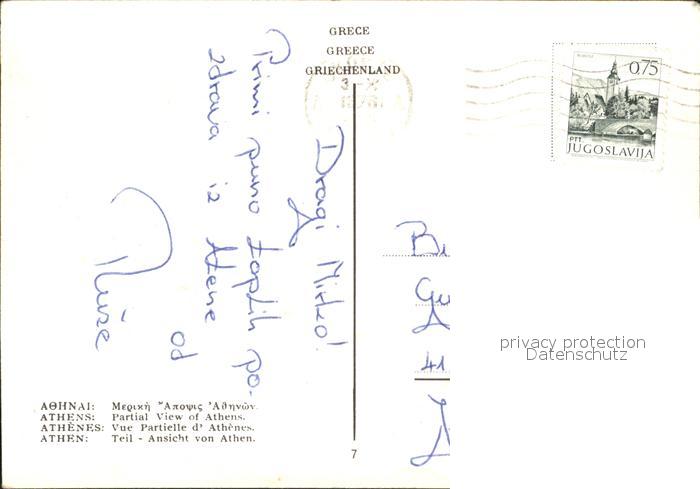 GRECE
GREECE
GRIECHENLAND
0,75
PTT
JUGOSLAVIJA
Dragi Mirko!
Primi puno toplih po-
zdrava iz Atene
od
41
privacy protection
Datenschutz
ΑΘΗΝΑΙ: Μερικὴ Ἄποψις Ἀθηνῶν.
ATHENS: Partial View of Athens.
ATHÈNES: Vue Partielle d' Athènes.
ATHEN: Teil - Ansicht von Athen.
7